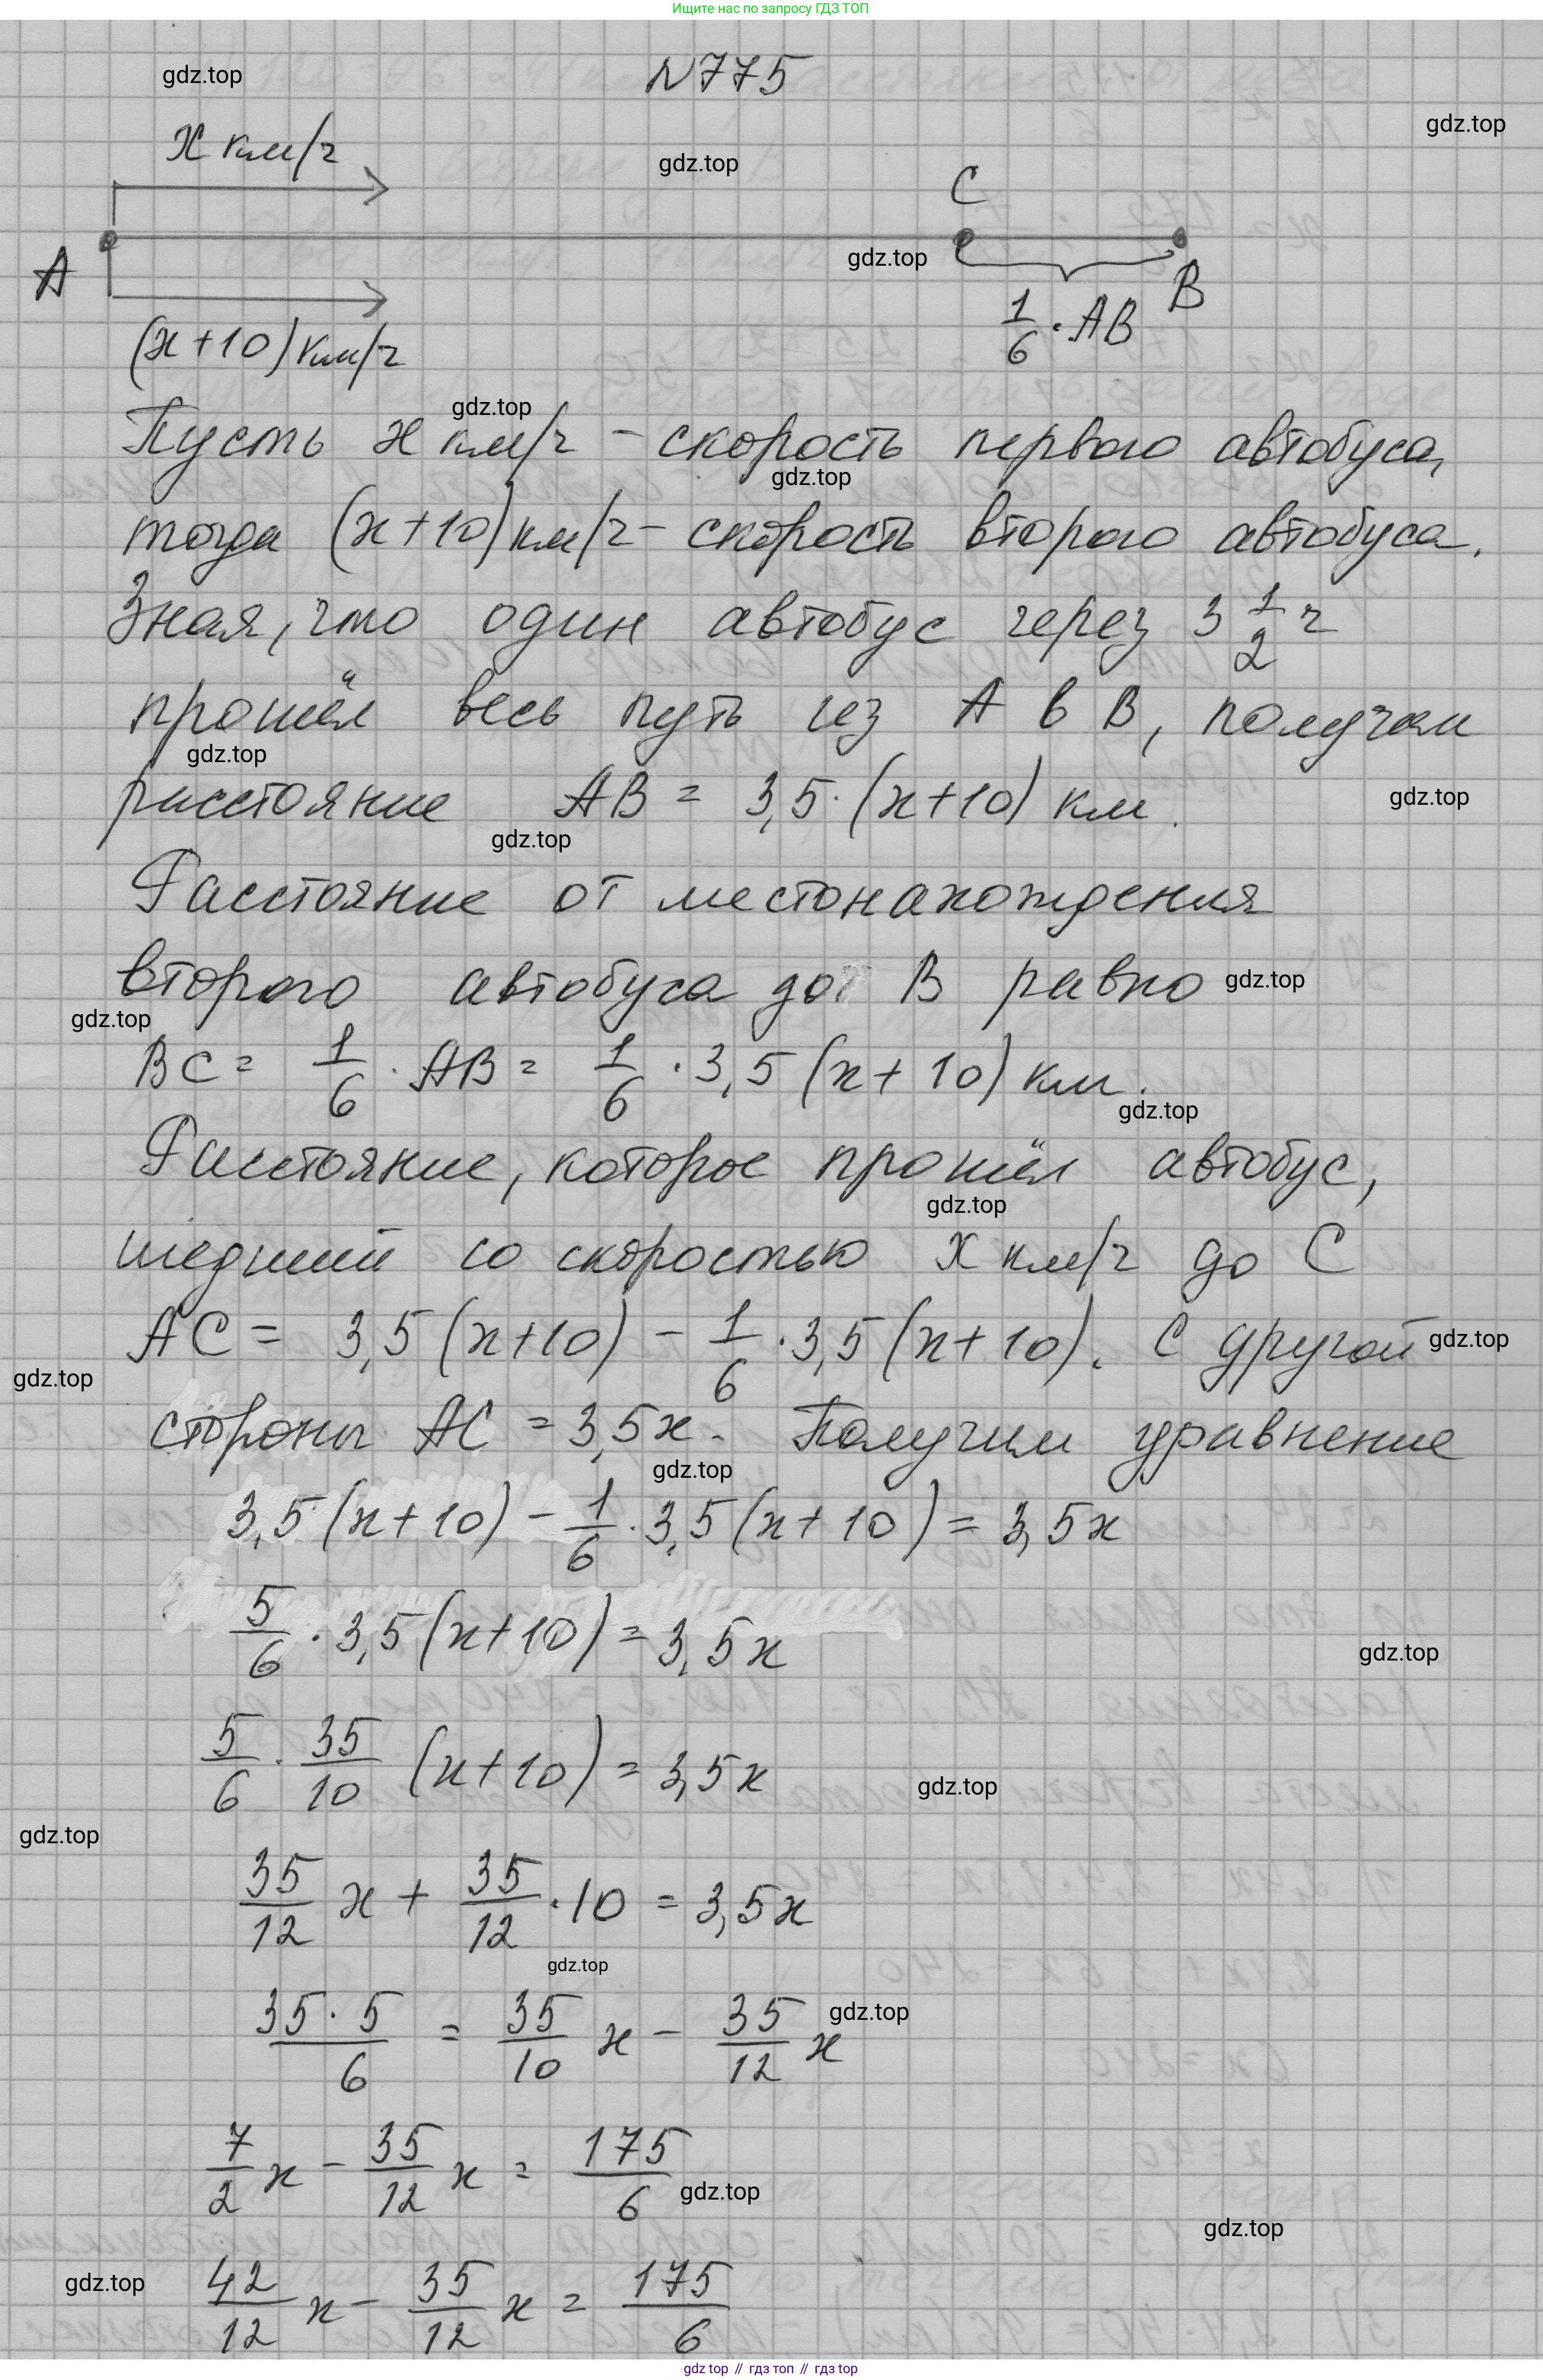 Ищите нас по запросу ГДЗ ТОП
N775
gdz.top
gdz.top
x км/ч
gdz.top
C
A
gdz.top
B
1/6 · AB
(x+10) км/ч
gdz.top
Пусть x км/ч - скорость первого автобуса,
gdz.top
тогда (x+10) км/ч - скорость второго автобуса.
Зная, что один автобус через 3 1/2 ч
прошёл весь путь из A в B, получим
gdz.top
расстояние AB = 3,5 · (x+10) км.
gdz.top
gdz.top
Расстояние от местонахождения
второго автобуса до B равно
gdz.top
gdz.top
BC = 1/6 · AB = 1/6 · 3,5 (x+10) км.
gdz.top
Расстояние, которое прошёл автобус,
gdz.top
шедший со скоростью x км/ч до C
AC = 3,5 (x+10) - 1/6 · 3,5 (x+10). С другой
gdz.top
gdz.top
стороны AC = 3,5x. Получим уравнение
gdz.top
3,5 (x+10) - 1/6 · 3,5 (x+10) = 3,5x
5/6 · 3,5 (x+10) = 3,5x
gdz.top
5/6 · 35/10 (x+10) = 3,5x
gdz.top
gdz.top
35/12 x + 35/12 · 10 = 3,5x
gdz.top
35·5/6 = 35/10 x - 35/12 x
gdz.top
7/2 x - 35/12 x = 175/6
gdz.top
gdz.top
gdz.top
42/12 x - 35/12 x = 175/6
gdz top // гдз топ // гдз top